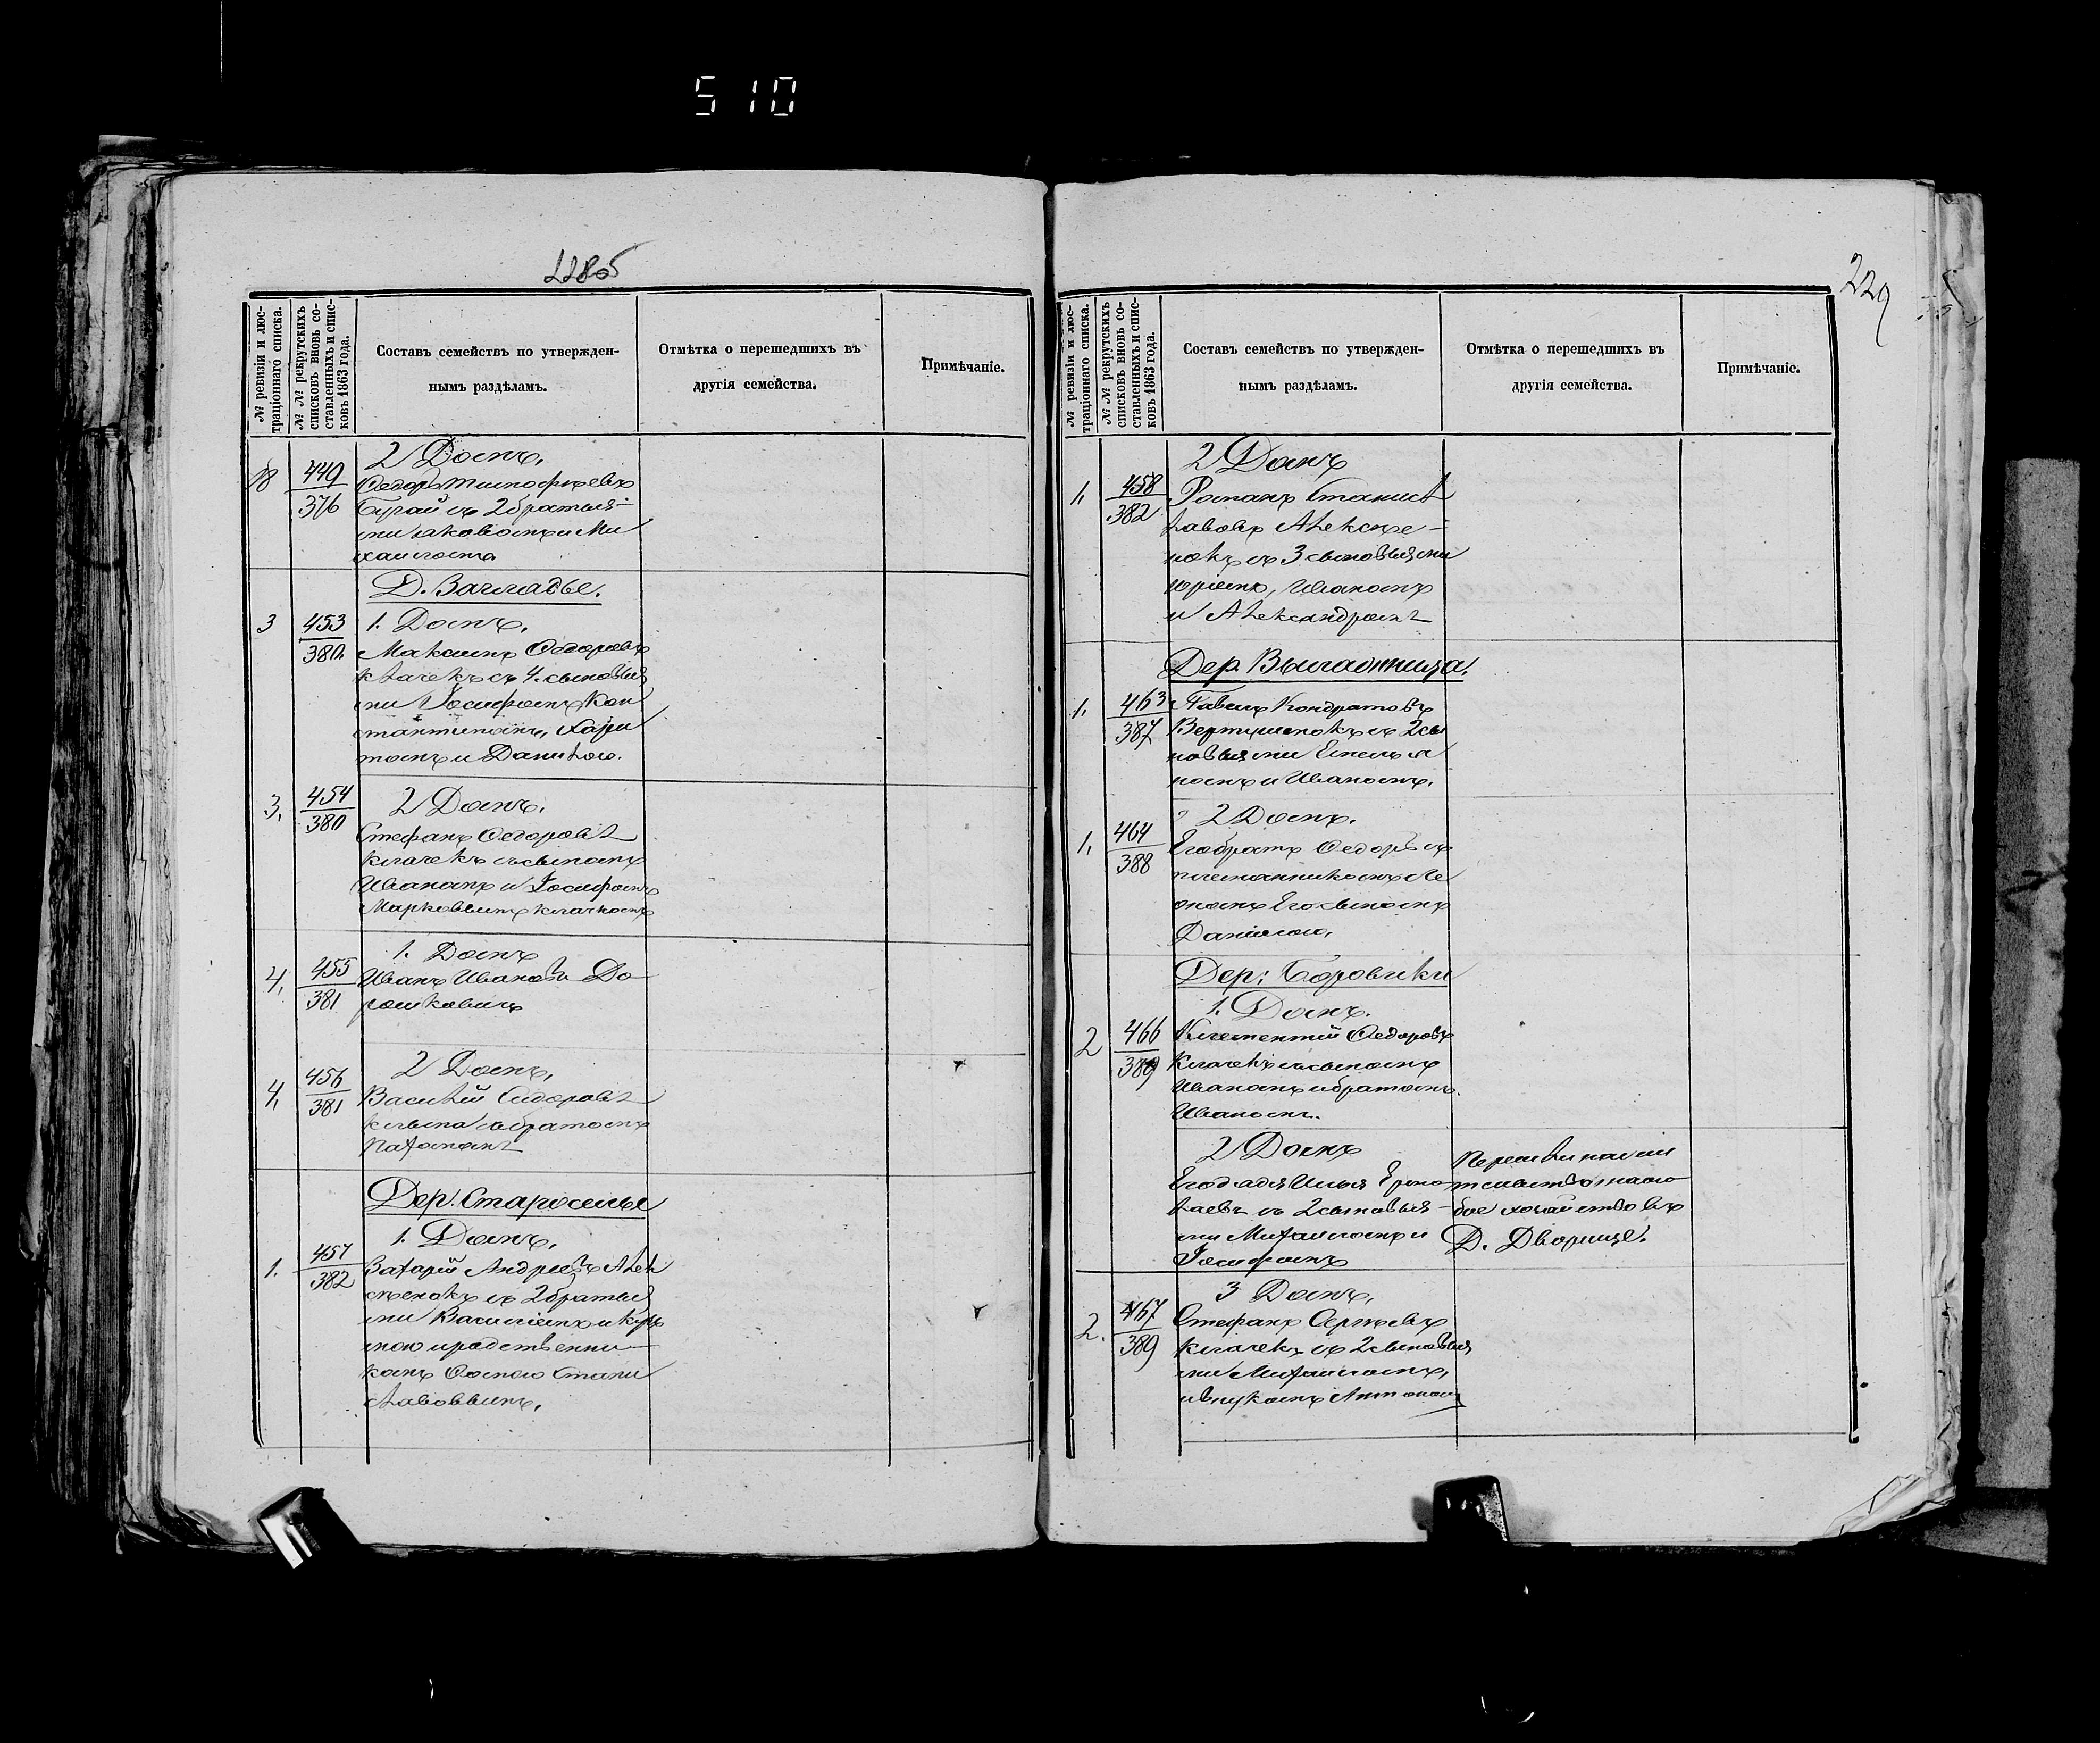 510
228об
№ ревизіи и люс-
траціоннаго списка.
№ № рекрутскихъ
списковъ вновь со-
ставленныхъ и спис-
ковъ 1863 года.
Составъ семействъ по утвержден-
нымъ раздѣламъ.
Отмѣтка о перешедшихъ въ
другія семейства.
Примѣчаніе.
18 449/376 2 Домъ.
Федоръ Тимофѣевъ
Бугай съ 2 братья-
ми Яковомъ и Ми
хаиломъ
Д. Загладье.
3 453/380 1. Домъ.
Максимъ Федоровъ
Клачекъ съ 4. сыновья
ми Іосифомъ, Кон
стантиномъ, Хари
тономъ и Данилою.
3, 454/380 2 Домъ.
Стефанъ Федоровъ
Клачекъ съ сыномъ
Иваномъ и Іосифомъ
Марковымъ Клачкомъ
4, 455/381 1. Домъ
Иванъ Ивановъ До
рошкевичъ
4, 456/381 2 Домъ,
Василій Сидоровъ
съ братомъ
Пахомомъ
Дер. Староселье
1. 457/382 1. Домъ,
Захарій Андреевъ Алек
сѣенокъ съ 2 братья
ми Василіемъ и Кузь
мою и родственни
комъ Фомою Стани
славовымъ.
229
№ ревизіи и люс-
траціоннаго списка.
№ № рекрутскихъ
списковъ вновь со-
ставленныхъ и спис-
ковъ 1863 года.
Составъ семействъ по утвержден-
нымъ раздѣламъ.
Отмѣтка о перешедшихъ въ
другія семейства.
Примѣчаніе.
1, 458/382 2 Домъ
Романъ Станис
лавовъ Алексѣе-
нокъ съ 3 сыновьями
Юріемъ, Иваномъ
и Александромъ
Дер.
1. 463/387 Павелъ Кондратовъ
съ 2 сы
новьями Емелья
номъ и Иваномъ.
1, 464/388 2 Домъ.
Его братъ Федоръ съ
племянникомъ Ле
ономъ Его сыномъ
Даніилою,
Дер: Боровики
2 466/389 1. Домъ.
Климентій Федоровъ
Клачекъ съ сыномъ
Иваномъ и братомъ
Иваномъ.
2 Домъ
Его дядя Илья Ермо
лаевъ съ 2 сыновья-
ми Михаиломъ и
Іосифомъ
Перешли на жи
тельство
хозяйство въ
Д. Дворище.
2. 467/389 3 Домъ,
Стефанъ Сергѣевъ
Клачекъ съ 2 сыновья
ми Михаиломъ,
и внукомъ Антономъ